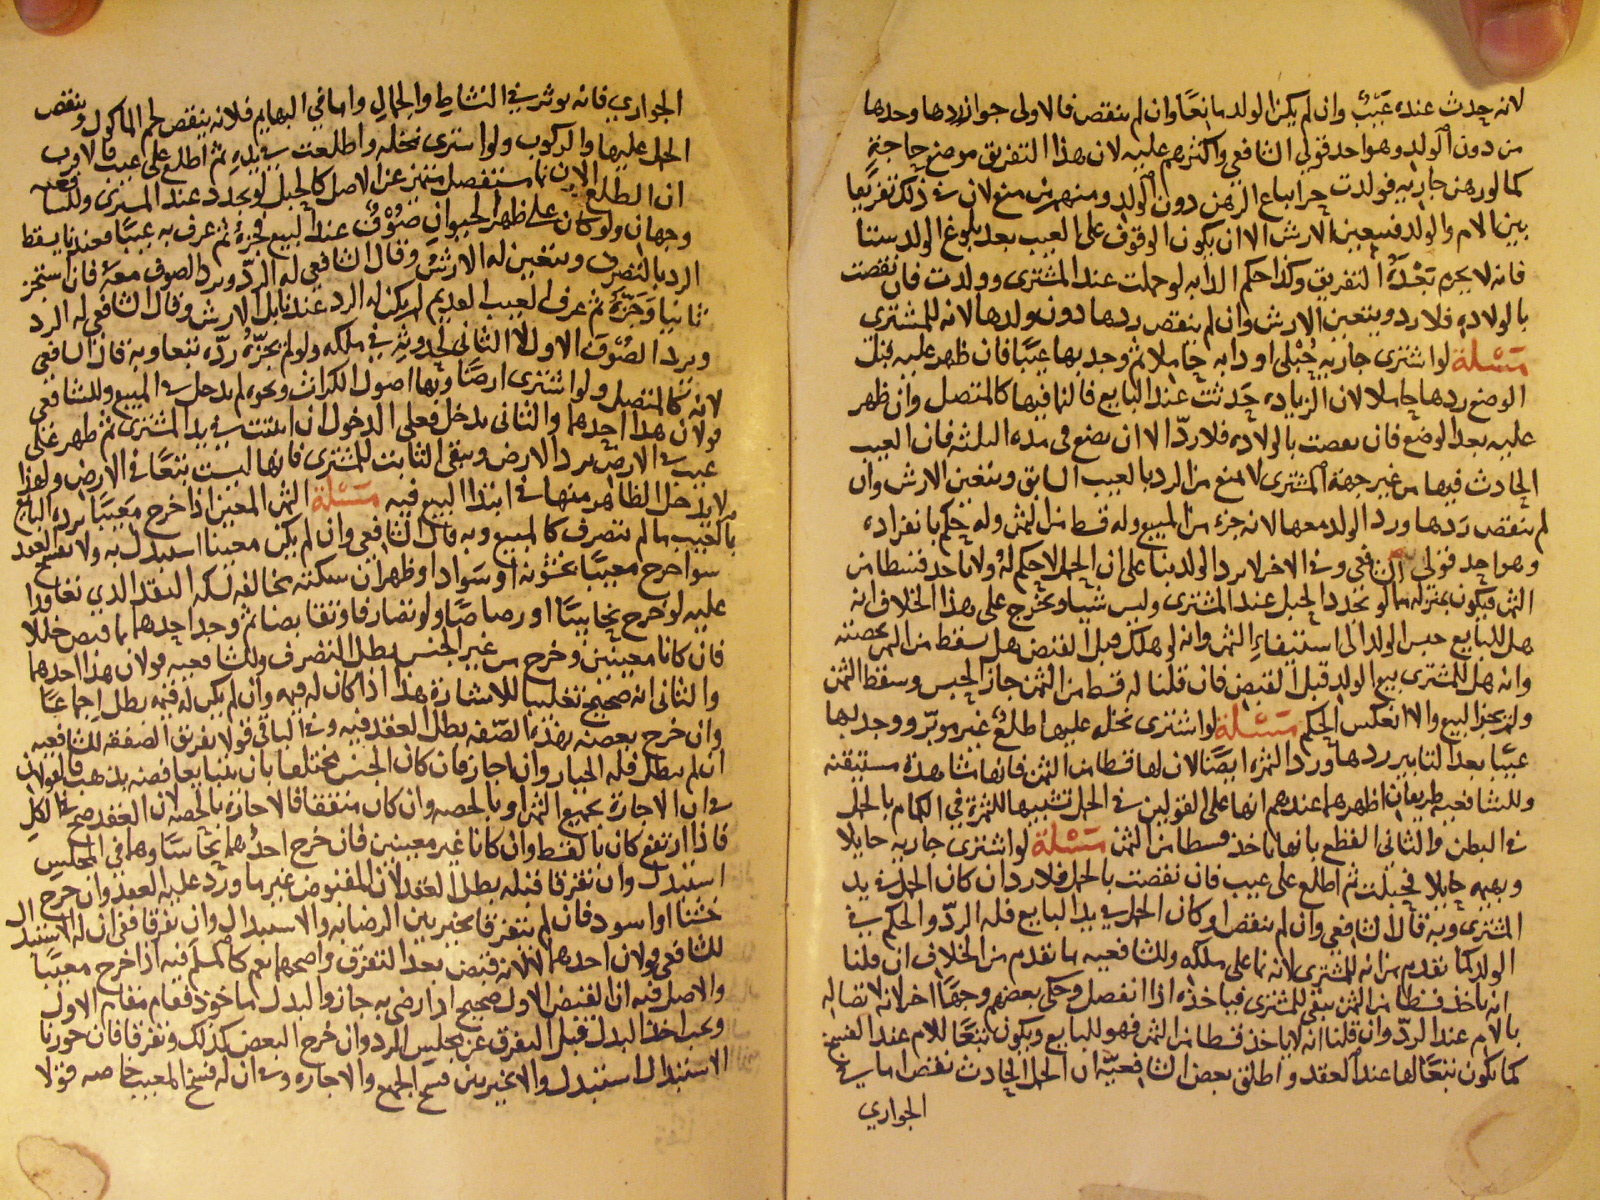 لانه حدث عنده عيب وان لم يكن الولد مانعا وان لم ينقص فالاولى جواز ردها وحدها
من دون الولد وهو احد قولي الشافعي واكثرهم عليه لان هذا التفريق موضع حاجة
كما لو رهن جاريه فولدت حرا يباع الرهن دون الولد ومنهم من منع لان في ذلك تفريقا
بين الام والولد فيتعين الارش الا ان يكون الوقوف على العيب بعد بلوغ الولد سنا
فانه لا يحرم بعده التفريق وكذا حكم الدابه لو حملت عند المشتري وولدت فان نقصت
بالولاده فلا رد ويتعين الارش وان لم ينقص ردها دون ولدها لانه للمشتري
مسئلة لو اشترى جاريه حبلى او دابه حاملا ثم وجد بها عيبا فان ظهر عليه قبل
الوضع ردها حاملا لان الزياده حدثت عند البايع فالنما فيها كالمتصل وان ظهر
عليه بعد الوضع فان نقصت بالولاده فلا رد الا ان يضع في مده الثلثه فان العيب
الحادث فيها من غير جهة المشتري لا يمنع من الرد بالعيب السابق ويتعين الارش وان
لم ينقص ردها ورد الولد معها لانه جزء من المبيع وله قسط من الثمن وله حكم بانفراده
وهو احد قولي الشافعي وفي الاخر لا يرد الولد بنا على ان الحمل لا حكم له ولا ياخذ قسطا من
الثمن فيكون بمنزله ما لو تجدد الحبل عند المشتري وليس شيا ويخرج على هذا الخلاف انه
هل للبايع حبس الولد الى استيفاء الثمن وانه لو هلك قبل القبض هل يسقط من الثمن بحصته
وانه هل للمشتري بيع الولد قبل القبض فان قلنا له قسط من الثمن جاز الحبس وسقط الثمن
ولم يجز البيع والا انعكس الحكم مسئلة لو اشترى نخله عليها طلع غير موبر ووجد بها
عيبا بعد التابير ردها ورد الثمره ايضا لان لها قسطا من الثمن فانها مشاهدة مستيقنه
وللشافعيه طريقان اظهرهما عندهم انها على القولين في الحمل تشبيها للثمرة في الكمام بالحمل
في البطن والثاني القطع بانها ياخذ قسطا من الثمن مسئلة لو اشترى جاريه حايلا
وبهيمه حايلا فحبلت ثم اطلع على عيب فان نقصت بالحمل فلا رد ان كان الحمل في يد
المشتري وبه قال الشافعي وان لم ينقص او كان الحمل في يد البايع فله الرد والحكم في
الولد كما تقدم من انه للمشتري لانه نما على ملكه وللشافعيه ما تقدم من الخلاف ان قلنا
انه ياخذ قسطا من الثمن بقي للمشتري فياخذه اذا انفصل وحكى بعضهم وجها اخر لانه لاتصاله
بالام عند الرد وان قلنا انه لا ياخذ قسطا من الثمن فهو للبايع ويكون تبعا للام عند الفسخ
كما يكون تبعا لها عند العقد واطلق بعض الشافعية ان الحمل الحادث نقص اما في
الجواري
الجواري فانه يوثر في النشاط والجمال واما في البهايم فلانه ينقص لحم الماكول وينقص
الحمل عليها والركوب ولو اشترى نخله واطلعت في يده ثم اطلع على عيب فالاقرب
ان الطلع الان نما مستفصل متميز عن الاصل كالحبل لو تجدد عند المشتري وللشافعيه
وجهان ولو كان على ظهر الحيوان صوف عند البيع فجزه ثم عرف به عيبا فعندنا يسقط
الرد بالتصرف ويتعين له الارش وقال الشافعي له الرد ويرد الصوف معه فان استجز
ثانيا وجزه ثم عرف العيب القديم لم يكن له الرد عندنا بل الارش وقال الشافعي له الرد
ويرد الصوف الاول لا الثاني لحدوثه في ملكه ولو لم يجزه رده تبعا وبه قال الشافعي
لانه كالمتصل ولو اشترى ارضا وبها اصول الكراث ونحوه لم يدخل في المبيع وللشافعي
قولان هذا احدهما والثاني يدخل فعلى الدخول ان انبتت في يد المشتري ثم ظهر على
عيب في الارض يرد الارض ويبقى الثابت للمشتري فانها ليست تبعا في الارض ولهذا
لا يدخل الظاهر منها في ابتدا البيع فيه مسئلة الثمن المعين اذا خرج معيبا يرده البايع
بالعيب ما لم يتصرف كالمبيع وبه قال الشافعي وان لم يكن معينا استبدل به ولا يفسخ العقد
سوا خرج معيبا بخشونه او سواد او ظهر ان سكته مخالفه لسكه النقد الذي تعاقدا
عليه لو خرج نحاسا او رصاصا ولو تصارفا وتقابضا ثم وجد احدهما بما قبض خللا
فان كانا معينين وخرج من غير الجنس بطل التصرف وللشافعيه قولان هذا احدهما
والثاني انه صحيح تغليبا للاشارة هذا اذا كان له قيمه وان لم يكن له قيمه بطل اجماعا
وان خرج بعضه بهذه الصفه بطل العقد فيه وفي الباقي قولا تفريق الصفقه للشافعيه
ان لم يبطل فله الخيار وان اجاز فان كان الجنس مختلفا بان تبايعا فضه بذهب فالقولان
في ان الاجازة بجميع الثمن او بالحصه وان كان متفقا فالاجازة بالحصه لان العقد صح في الكل
فاذا ارتفع كان بالقسط وان كانا غير معينين فان خرج احدهما نحاسا وهما في المجلس
استبدل وان تفرقا قبله بطل العقد لان المقبوض غير ما ورد عليه العقد وان خرج
خشنا او اسود فان لم يتفرقا تخير بين الرضا به والاستبدال وان تفرقا ففي ان له الاستبدال
للشافعي قولان احدهما لا لانه قبض بعد التفرق واصحهما نعم كالمسلم فيه اذا خرج معيبا
والاصل فيه ان القبض الاول صحيح اذ لو رضي به جاز والبدل ماخوذ فقام مقام الاول
وعند اخذ البدل قبل التفرق عن مجلس الرد وان خرج البعض كذلك وتفرقا فان جوزنا
الاستبدال استبدل والا تخير بين فسخ الجميع والاجازه وفي ان له فسخ المعيب خاصه قولا